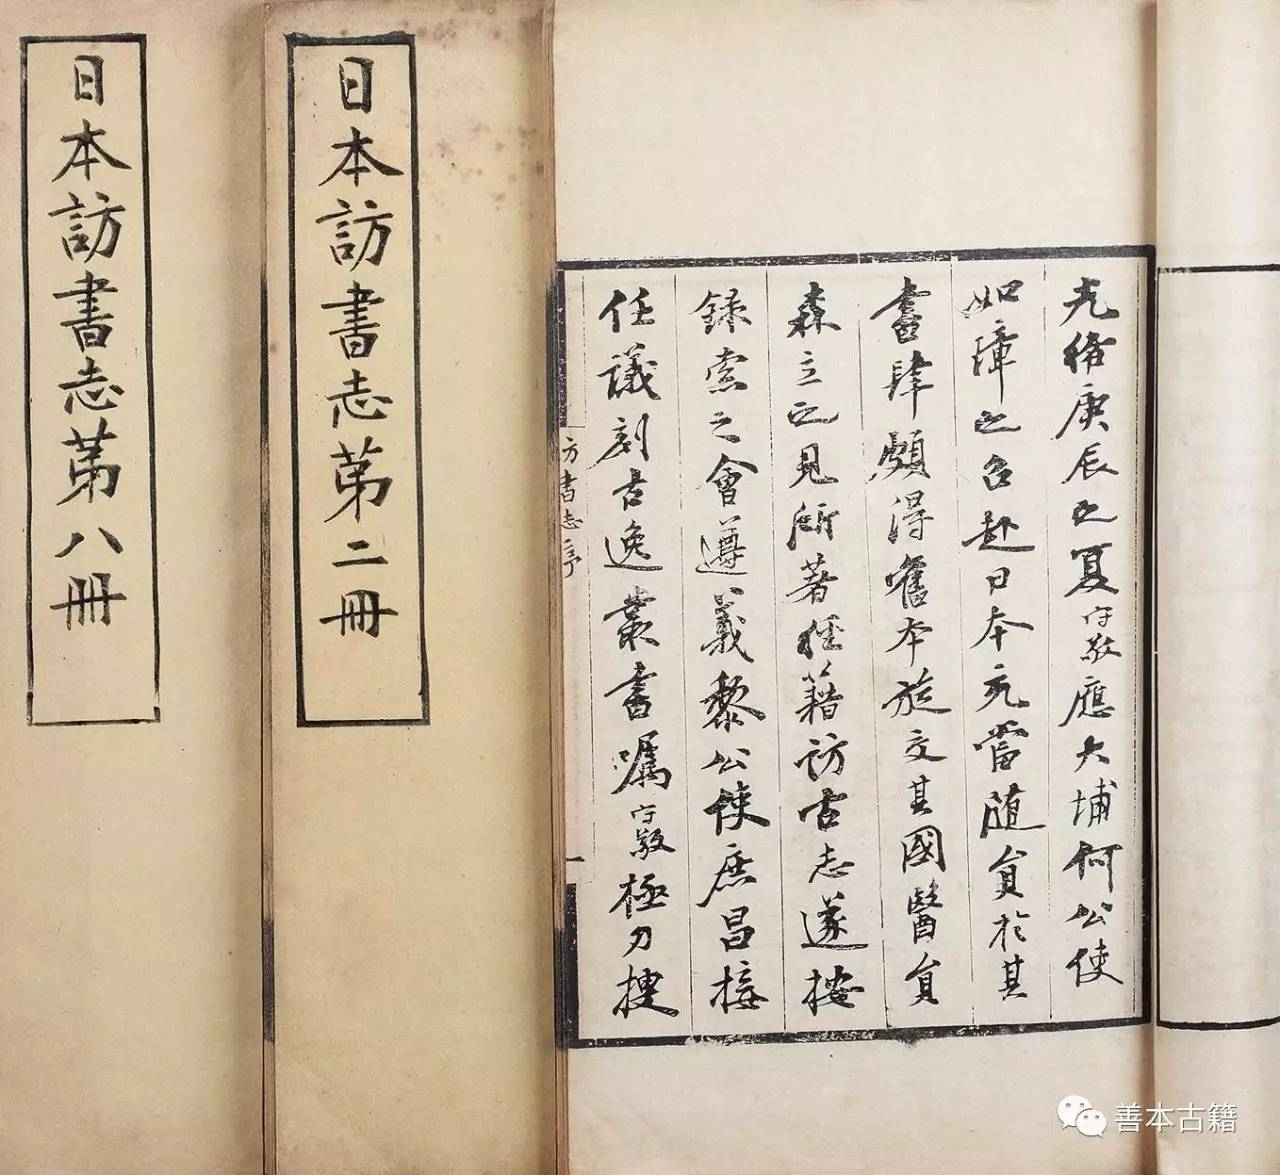 光緒庚辰之夏守敬應大埔何公使
如璋之召赴日本充當随員於其
書肆頗得舊本旋交其國醫員
森立之見所著經籍訪古志遂按
録索之會遵義黎公使庶昌接
任議刻古逸叢書囑守敬極力搜
訪書志序
一
日本訪書志第二冊
日本訪書志第八冊
善本古籍